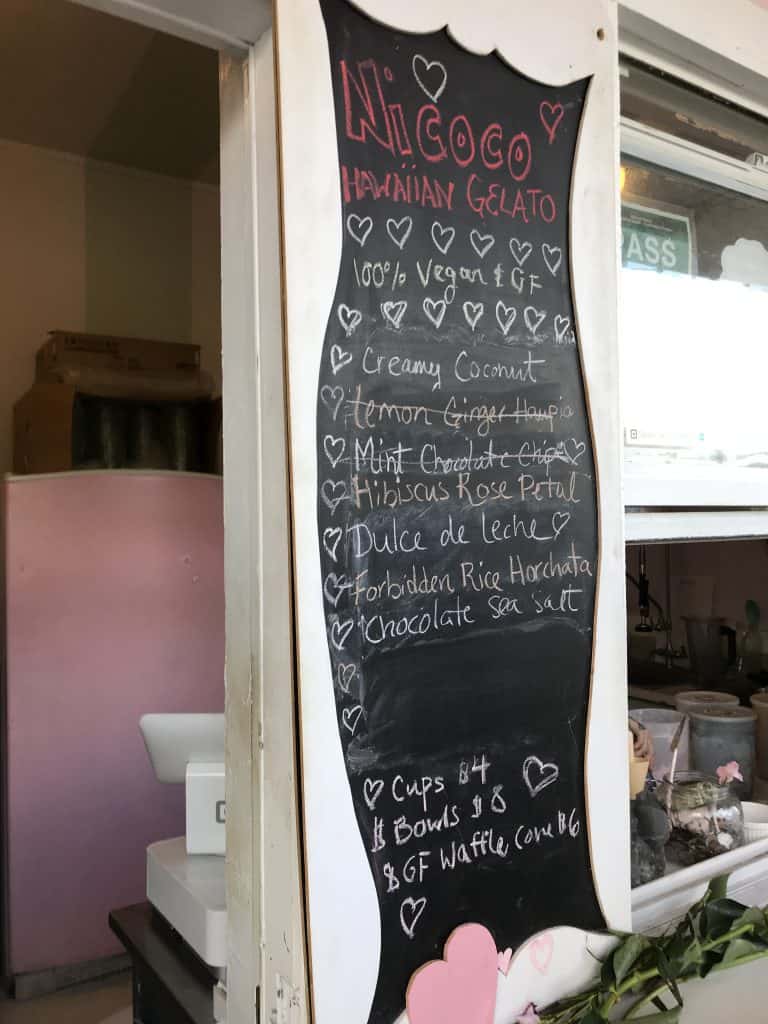 Nicoco
HAWAIIAN GELATO
100% Vegan & GF
Creamy Coconut
Lemon Ginger Haupia
Mint Chocolate Chip
Hibiscus Rose Petal
Dulce de leche
Forbidden Rice Horchata
Chocolate sea salt
Cups $4
Bowls $8
GF Waffle Cone $6
PASS